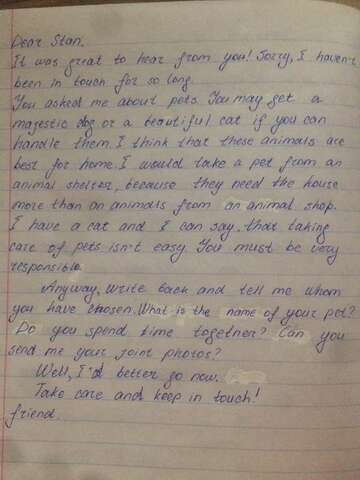 Dear Stan,
It was great to hear from you! Sorry, I haven't
been in touch for so long.
You asked me about pets. You may get a
majestic dog or a beautiful cat if you can
handle them. I think that these animals are
best for home. I would take a pet from an
animal shelter, because they need the house
more than an animals from an animal shop.
I have a cat and I can say, that taking
care of pets isn't easy. You must be very
responsible.
Anyway, write back and tell me whom
you have chosen. What is the name of your pet?
Do you spend time together? Can you
send me your joint photos?
Well, I'd better go now.
Take care and keep in touch!
friend.